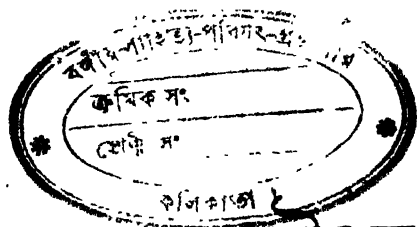 বঙ্গীয়-সাহিত্য-পরিষৎ-গ্রন্থ
ক্রমিক সং
শ্রেণী সং
কলিকাতা